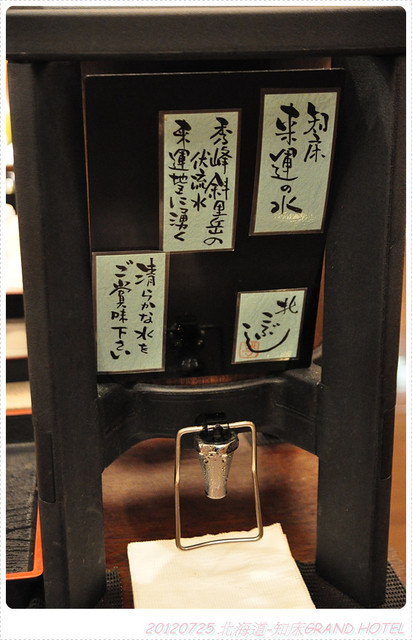 知床
来運の水
秀峰斜里岳の
伏流水
来運の地に湧く
清らかな水を
ご賞味下さい
北
こぶし
20120725 北海道-知床GRAND HOTEL